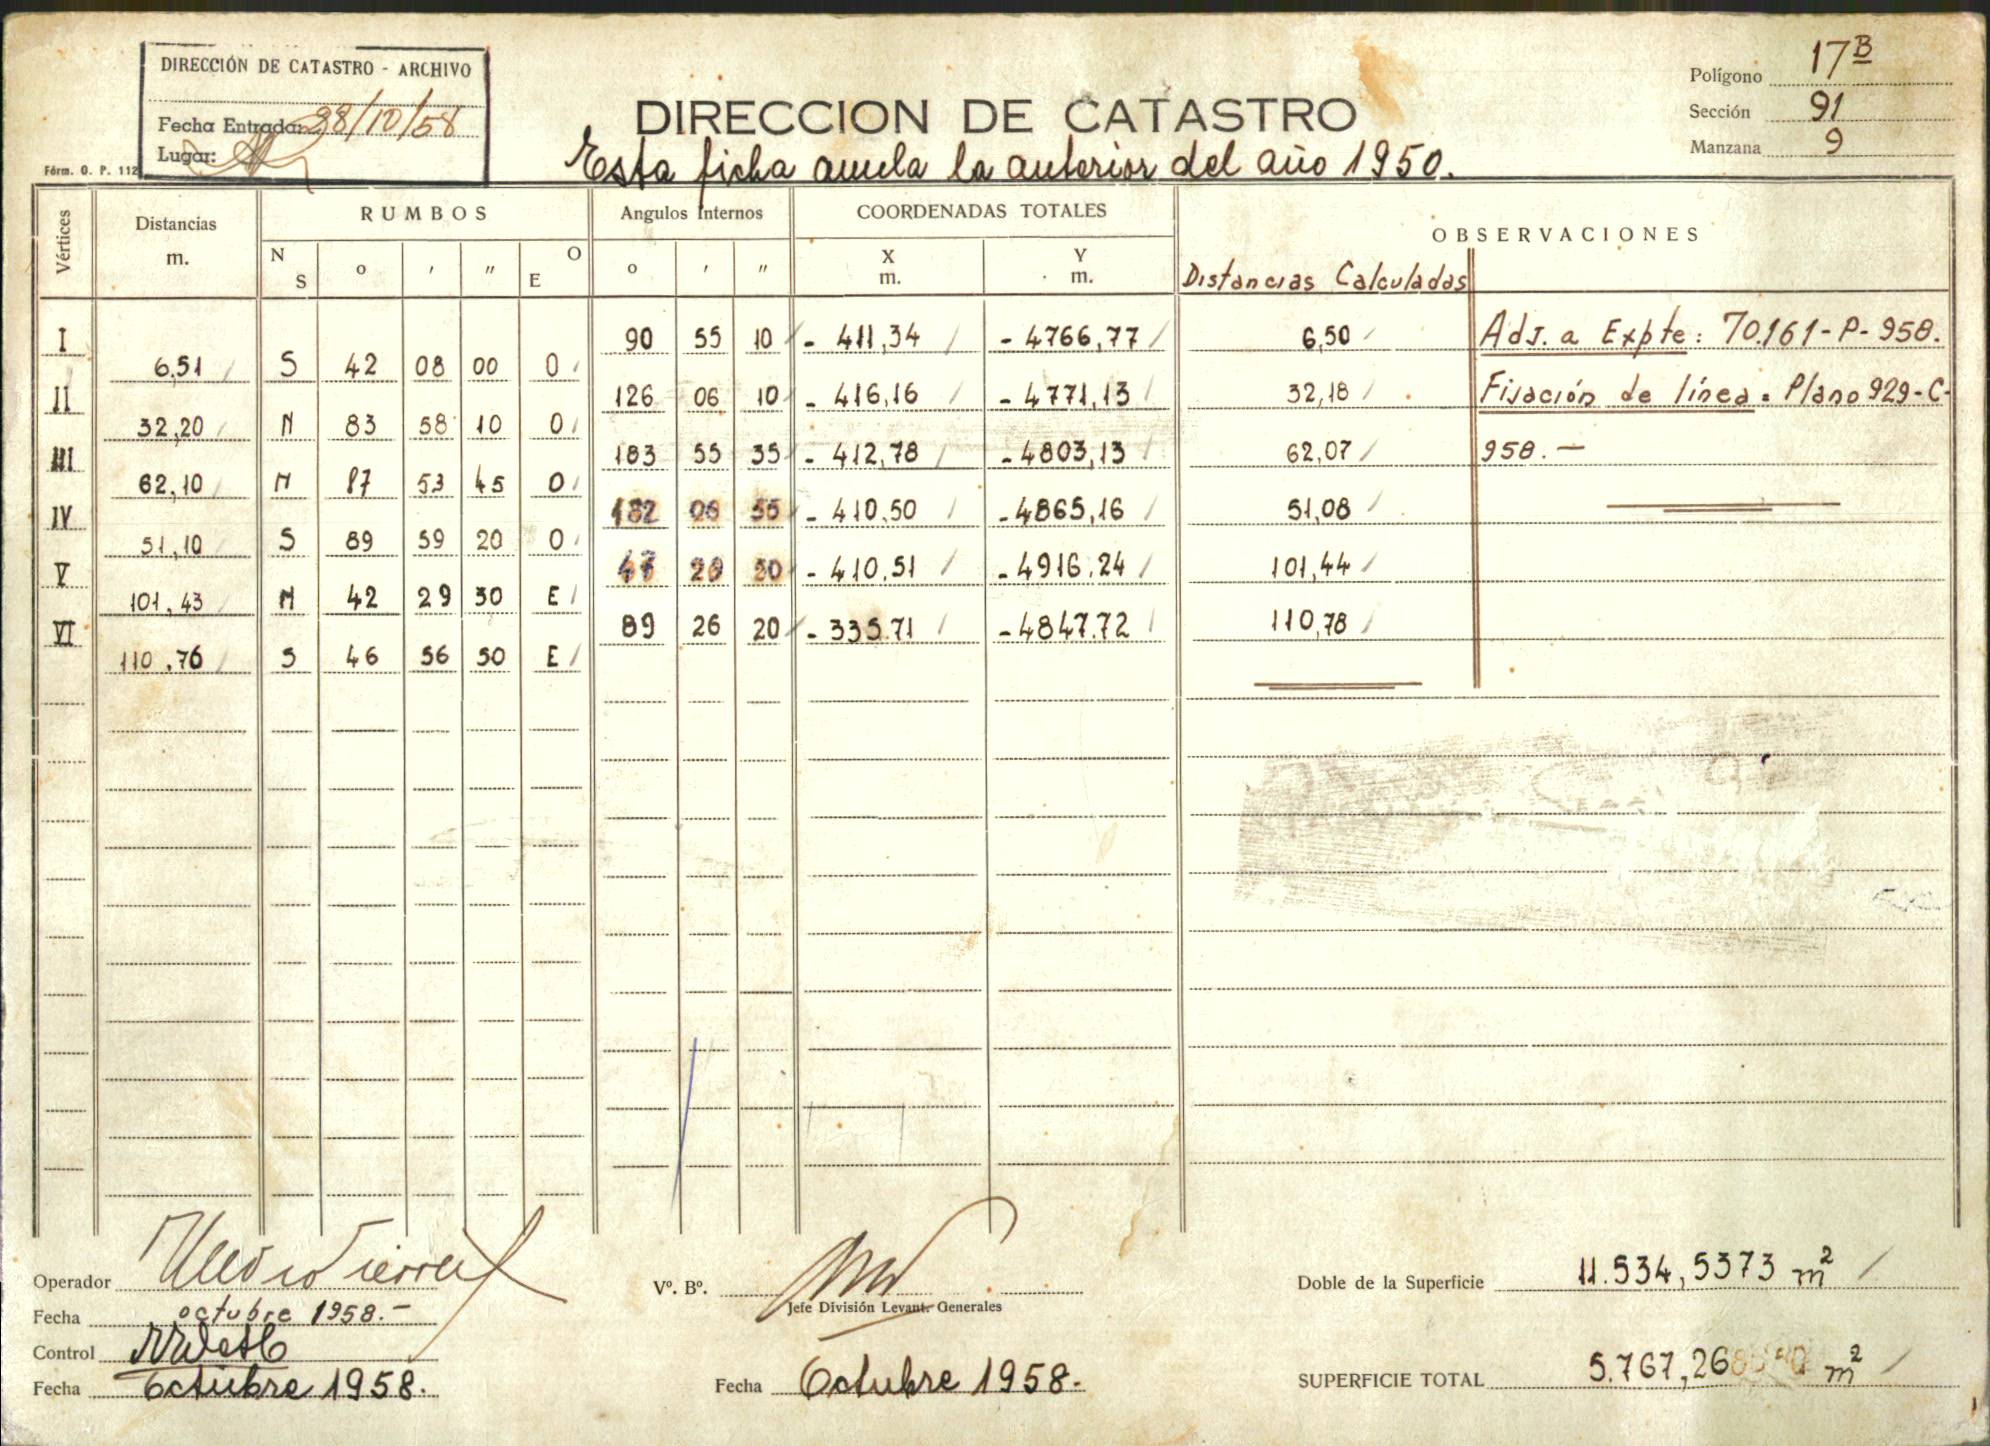 DIRECCIÓN DE CATASTRO - ARCHIVO
Fecha Entrada: 28/10/58
Lugar:
Fórm. O. P. 112
DIRECCION DE CATASTRO
Esta ficha anula la anterior del año 1950.
Polígono 17B
Sección 91
Manzana 9
Vértices Distancias m. RUMBOS Angulos Internos COORDENADAS TOTALES OBSERVACIONES
N S o ' " O E o ' " X m. Y m. Distancias Calculadas
I 90 55 10 - 411,34 - 4766,77 6,50 Adj. a Expte: 70.161-P-958.
6,51 S 42 08 00 O
II 126 06 10 - 416,16 - 4771,13 32,18 Fijación de línea: Plano 929-C-
32,20 N 83 58 10 O
III 183 55 35 - 412,78 - 4803,13 62,07 958.—
62,10 N 87 53 45 O
IV 182 06 55 - 410,50 - 4865,16 51,08
51,10 S 89 59 20 O
V 47 29 50 - 410,51 - 4916,24 101,44
101,43 N 42 29 30 E
VI 89 26 20 - 335,71 - 4847,72 110,78
110,76 S 46 56 50 E
Operador
Fecha octubre 1958.-
Control
Fecha Octubre 1958.
Vº. Bº.
Jefe División Levant. Generales
Fecha Octubre 1958.
Doble de la Superficie 11.534,5373 m2
SUPERFICIE TOTAL 5.767,26 m2